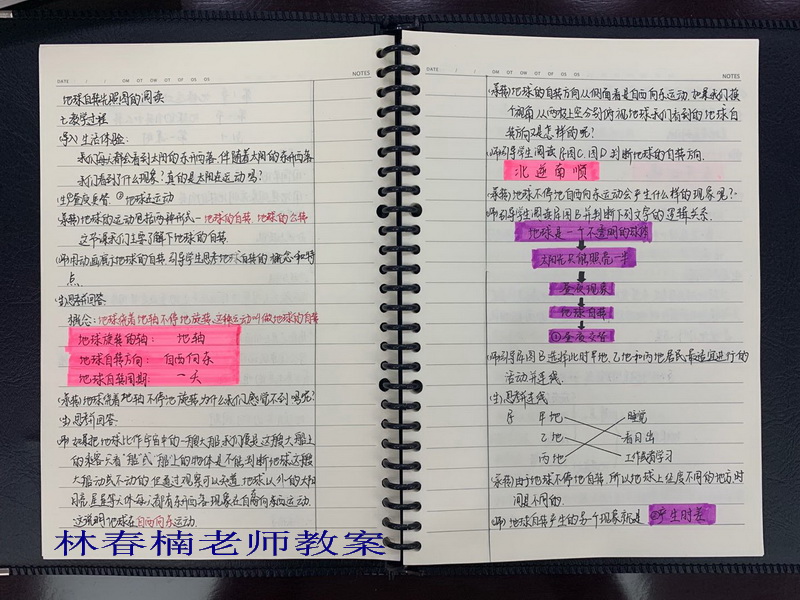 DATE / / OM OT OW OT OF OS OS NOTES
地球自转光照图的阅读
七、教学过程
导入 生活体验:
我们每天都会看到太阳的东升西落,伴随着太阳的东升西落
我们看到了什么现象?真的是太阳在运动吗?
地球在运动
地球的运动包括两种形式—地球的自转、地球的公转
这节课我们主要了解下地球的自转
用动画展示地球的自转,引导学生思考地球自转的概念和特
点
思考并回答
概念:地球绕着地轴不停地旋转,这种运动叫做地球的自转
地球旋转的轴: 地轴
地球自转方向: 自西向东
地球自转周期: 一天
地球绕着地轴不停地旋转为什么我们感觉不到呢?
思考并回答
如果把地球比作宇宙中的一艘大船,我们便是这艘大船上
的乘客,只看船或船上的物体是不能判断地球这艘
大船动或不动的,但通过观察可以知道,地球以外的太阳、
月亮、星星等天体每天都有东升西落现象,在自东向西运动,
这说明地球在自西向东运动.
DATE / / OM OT OW OT OF OS OS NOTES
地球的自转方向从侧面看是自西向东运动,如果我们换
个视角从两极上空分别俯视地球我们看到的地球自
转方向又是怎样的呢?
引导学生阅读导图C、图D判断地球的自转方向.
北逆南顺
地球不停地自西向东运动会产生什么样的现象呢?
引导学生阅读导图B并判断下列文字的逻辑关系.
地球是一个不透明的球体
太阳光只能照亮一半
昼夜现象
地球自转
①昼夜交替
引导导图B选择此时甲地、乙地和丙地居民最适宜进行的
活动并连线.
思考并连线
甲地 睡觉
乙地 看日出
丙地 工作或者学习
由于地球不停地自转,所以地球上经度不同的地方,时
间是不同的.
地球自转产生的另一个现象就是②产生时差
林春楠老师教案